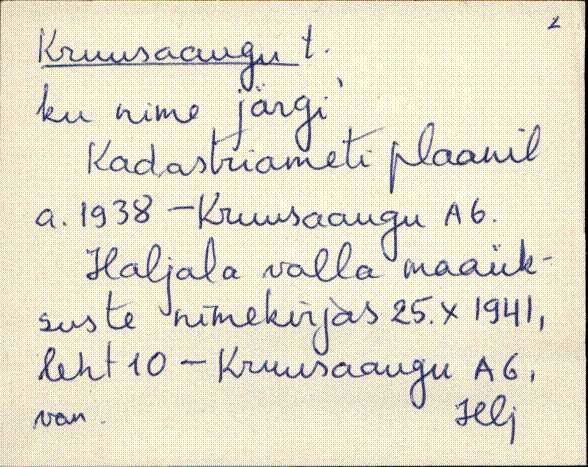 2
Kruusaaugu t.
ku nime järgi
Kadastriameti plaanil
a. 1938 - Kruusaaugu A6.
Haljala valla maaük-
suste nimekirjas 25.X 1941,
leht 10 - Kruusaaugu A6,
van. Hlj